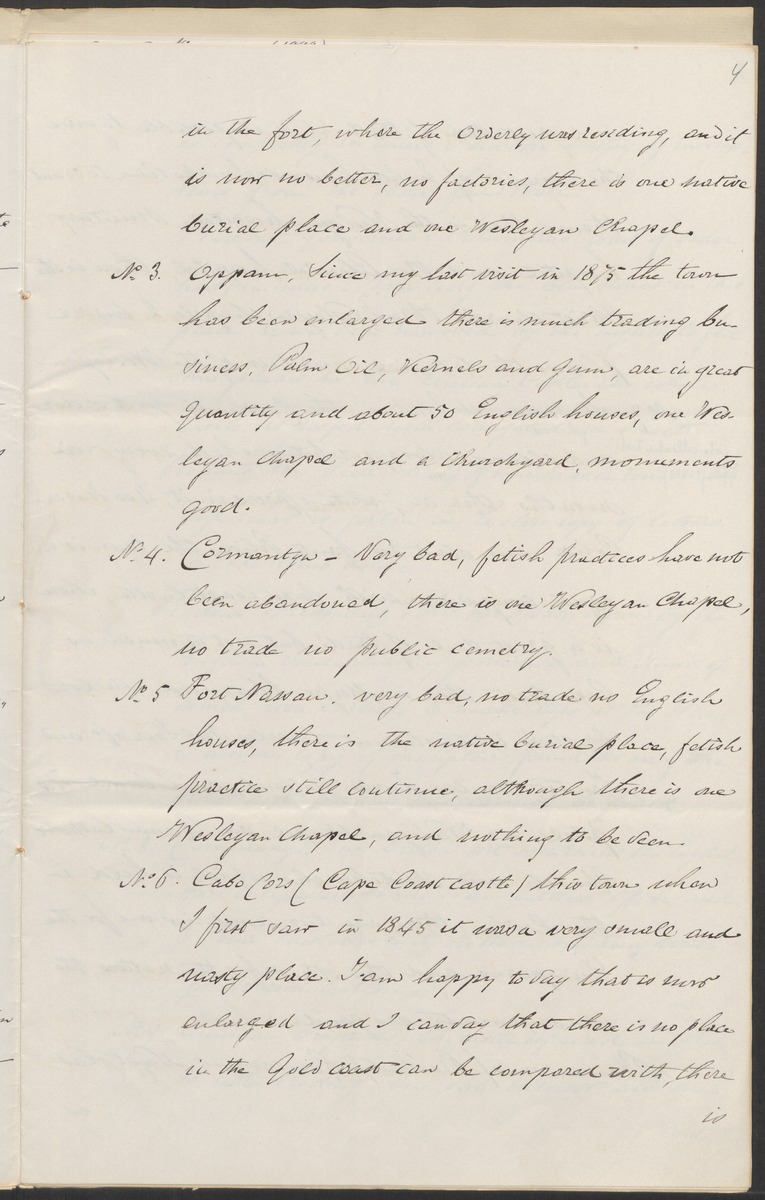 4
in the fort, where the Orderly was residing, and it
is now no better, no factories, there is one native
burial place and one Wesleyan Chapel.
No. 3. Appam, Since my last visit in 1875 the town
has been enlarged there is much trading bu-
siness, Palm Oil, Kernels and Gum, are in great
quantity and about 50 English houses, one Wes-
leyan Chapel and a Churchyard, monuments
good.
No. 4. Cormantyn - Very bad, fetish practices have not
been abandoned, there is one Wesleyan Chapel,
no trade no public cemetry.
No. 5 Fort Nassau. very bad, no trade no English
houses, there is the native burial place, fetish
practice still continue, although there is one
Wesleyan Chapel, and nothing to be seen.
No. 6. Cabo Cors (Cape Coast castle) this town when
I first saw in 1845 it was a very small and
nasty place. I am happy to day that is now
enlarged and I can day that there is no place
in the Gold coast can be compared with, there
is